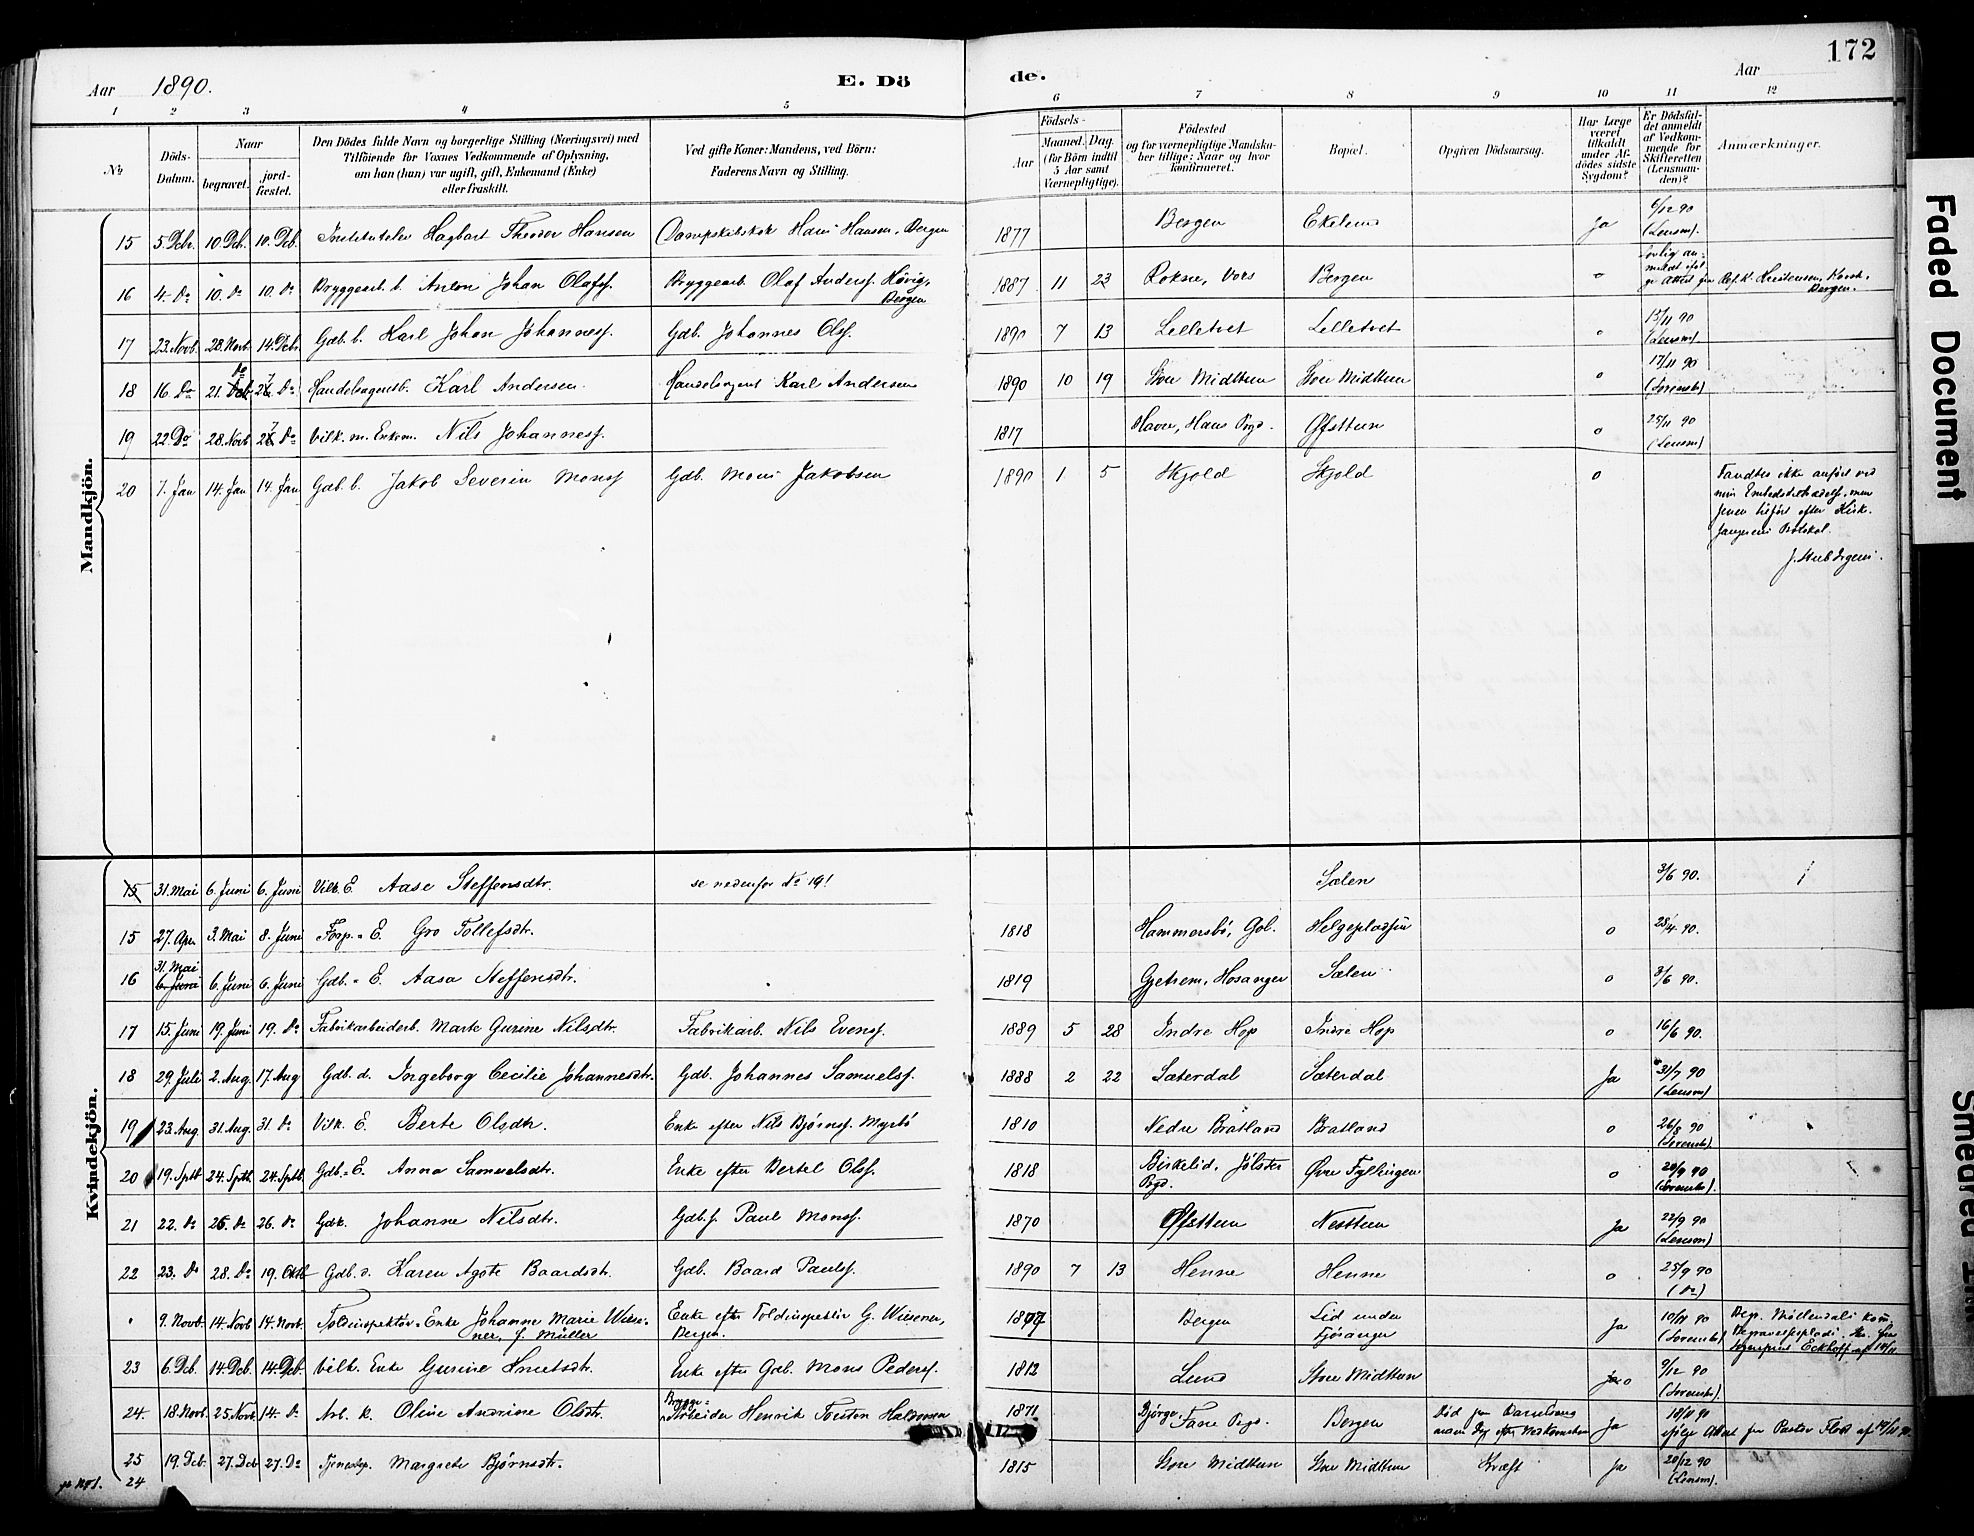 172
Aar 1890. E. Dö de. Aar
1 2 3 4 5 6 7 8 9 10 11 12
No
Döds-Datum.
Naar
begravet. jordfæstet.
Den Dödes fulde Navn og borgerlige Stilling (Næringsvei) med
Tilföiende for Voxnes Vedkommende af Oplysning,
om han (hun) var ugift, gift, Enkemand (Enke)
eller fraskilt.
Ved gifte Koner: Mandens, ved Börn:
Faderens Navn og Stilling.
Födsels-
Aar
Maaned. Dag.
(for Börn indtil
5 Aar samt
Værnepligtige).
Födested
og for værnepligtige Mandskaber tillige: Naar og hvor
konfirmeret.
Bopæl.
Opgiven Dödsaarsag.
Har Læge
været
tilkaldt
under Afdödes sidste
Sygdom?
Er Dödsfaldet anmeldt
af Vedkommende for
Skifteretten
(Lensmanden)?
Anmærkninger.
Mandkjön.
15 5. Dcb. 10. Dcb. 10. Dcb. Hagbart Theodor Hansen Hans Hansen, Bergen 1877 Bergen Ekelund Ja 6/12 90 (Lensm).
16 4. Do 10. Do 10. Do Bryggearb. b. Anton Johan Olafs. Bryggearb. Olaf Anders. Hövig, Bergen 1887 11 23 Vors Bergen o
17 23. Novb. 28. Novb 14. Dcb. Gdb. b. Karl Johan Johanness. Gdb. Johannes Ols. 1890 7 13 Lilletvet Lilletvet o 15/11 90 (Lensm)
18 16. Do 21. Do 27. Do Handelsagentb. Karl Andersen Handelsagent Karl Andersen 1890 10 19 Store Midttun Store Midttun o 17/11 90
19 22. Do 28. Novb 27. Do Vilk. m. Enkem. Nils Johanness. 1817 Havn, Hans Prgd. Øfsttun o 25/11 90 (Lensm)
20 7. Jan 14. Jan 14. Jan Gdb. b. Jakob Severin Monss Gdb. Mons Jakobsen 1890 1 5 Skjold Skjold o Fandtes ikke anført ved
min Embedstiltrædelse, men
senere tilført efter Kirkesangerens Protokol.
Kvindekjön.
15 31. Mai 6. Juni 6. Juni Vilk. E. Aase Steffensdtr. se nedenfor No 19! Sælen 3/6 90.
15 27. Apr. 3. Mai 8. Juni Forp. E. Gro Tollefsdtr. 1818 Hammersbö, Gol. Helgepladsen o 28/4 90.
16 31. Mai 6. Juni 6. Juni 6. Juni Gdb. E. Aasa Steffensdtr. 1819 Gjetrem, Hosanger Sælen o 3/6 90.
17 15. Juni 19. Juni 19. Do Fabrikarbeiderb. Marte Gurine Nilsdtr. Fabrikarb. Nils Evens. 1889 5 28 Indre Hop Indre Hop o 16/6 90.
18 29. Juli 2. Aug. 17. Aug Gdb. d. Ingeborg Cecilie Johannesdtr. Gdb. Johannes Samuels. 1888 2 22 Sæterdal Sæterdal Ja 31/7 90 (Lensm)
19 23. Aug. 31. Aug. 31. Do Vilk. E. Berte Olsdtr. Enke efter Nils Bjørns. Myrbö 1810 Nedre Bratland Bratland o 26/8 90
20 19. Sptb 24. Sptb. 24. Sptb. Gdb. E. Anna Samuelsdtr. Enke efter Bertel Ols. 1818 Birkelid, Jølster Prgd. Øvre Fyllingen o 20/9 90
21 22. Do 26. Do 26. Do Gdk. Johanne Nilsdtr. Gdb. s. Paul Mons. 1870 Øfsttun Nesttun Ja 22/9 90 (Lensm)
22 23. Do 28. Do 19. Oktb Gdb. d. Karen Agote Baardsdtr. Gdb. Baard Pauls. 1890 7 13 Henne Henne o 25/9 90 (Do)
9. Novb. 14. Novb 14. Novb. Toldinspektör-Enke Johanne Marie Wiesener, f. Müller Enke efter Toldinspektör G. Wiesener, Bergen. Bergen Lid under Fjösanger Ja 10/11 90
23 6. Dcb. 14. Dcb. 14. Dcb. Vilk. Enke Gurine Knutsdtr. Enke efter Gdb. Mons Peders. 1812 Lund Store Midttun o 9/12 90
24. 18. Novb. 25. Novb. 14. Do Arb. k. Oline Andrine Olsdtr. Bryggearbeider Henrik Torsten Halvorsen 1871 Bjørge, Fane Prgd. Bergen Ja 18/11 90
25 19. Dcb. 27. Dcb 27. Do Margrete Bjørnsdtr. 1815 Store Midttun Store Midttun Kræft Ja 20/12 90 (Lensm).
24
Faded Document
Smedred Ink